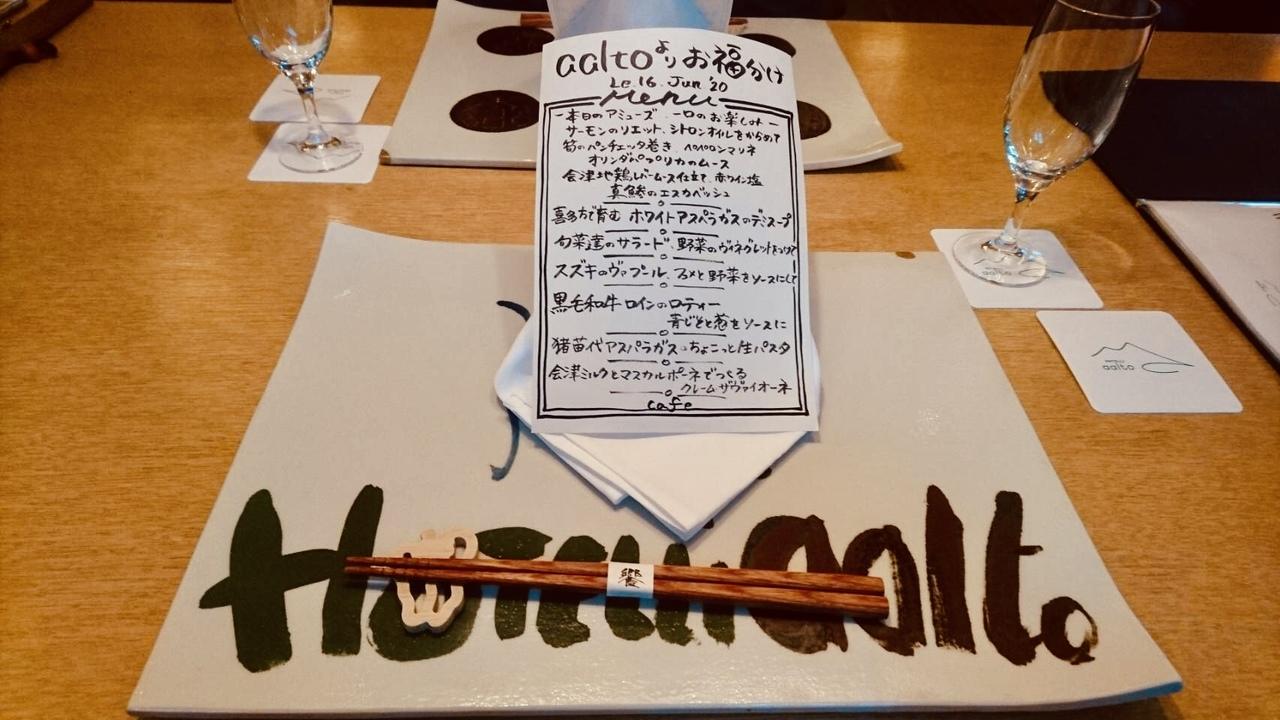 aaltoよりお福分け
Le.16.Jun.'20
Menu
-本日のアミューズ 一口のお楽しみ-
サーモンのリエット、シトロンオイルをからめて
筍のパンチェッタ巻き、ペペロンマリネ
オリンダパプリカのムース
会津地鶏レバームース仕立て、赤ワイン塩
真鯵のエスカベッシュ
喜多方で育む ホワイトアスパラガスのデミスープ
旬菜達のサラード、野菜のヴィネグレットをつけて
スズキのヴァプール、
と野菜をソースにして
黒毛和牛ロインのロティー
青じそと葱をソースに
猪苗代アスパラガス・ちょこっと生パスタ
会津ミルクとマスカルポーネでつくる
クレームザヴァイオーネ
cafe
aalto
Hotelli aalto
饗